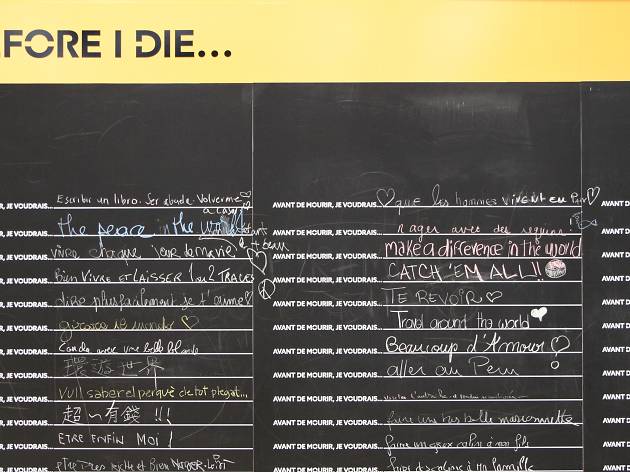 FORE I DIE...
R, JE VOUDRAIS... Escribir un libro. Ser abuela. Volverme
a casar
R, JE VOUDRAIS... the peace in the world
R, JE VOUDRAIS... vivre chaque jour de ma vie
R, JE VOUDRAIS... BIEN VIVRE ET LAISSER 1 ou 2 TRACES
R, JE VOUDRAIS... dire plus facilement je t'aime
R, JE VOUDRAIS...
R, JE VOUDRAIS... avec une belle blonde
R, JE VOUDRAIS... 環遊世界
R, JE VOUDRAIS... Vull saber el perquè de tot plegat...
R, JE VOUDRAIS... 超有錢 !!!
R, JE VOUDRAIS... ETRE ENFIN MOI !
R, JE VOUDRAIS... être très
AVANT DE MOURIR, JE VOUDRAIS... que les hommes vivent en paix
AVANT DE MOURIR, JE VOUDRAIS... nager avec des requins
AVANT DE MOURIR, JE VOUDRAIS... make a difference in the world
AVANT DE MOURIR, JE VOUDRAIS... CATCH 'EM ALL!!
AVANT DE MOURIR, JE VOUDRAIS... TE REVOIR
AVANT DE MOURIR, JE VOUDRAIS... Travel around the world
AVANT DE MOURIR, JE VOUDRAIS... Beaucoup d'Amour !
AVANT DE MOURIR, JE VOUDRAIS... aller au Perou
AVANT DE MOURIR, JE VOUDRAIS...
AVANT DE MOURIR, JE VOUDRAIS... faire une très belle marionnette
AVANT DE MOURIR, JE VOUDRAIS... faire un gros calin à mon fils
AVANT DE MOURIR, JE VOUDRAIS... à ma famille